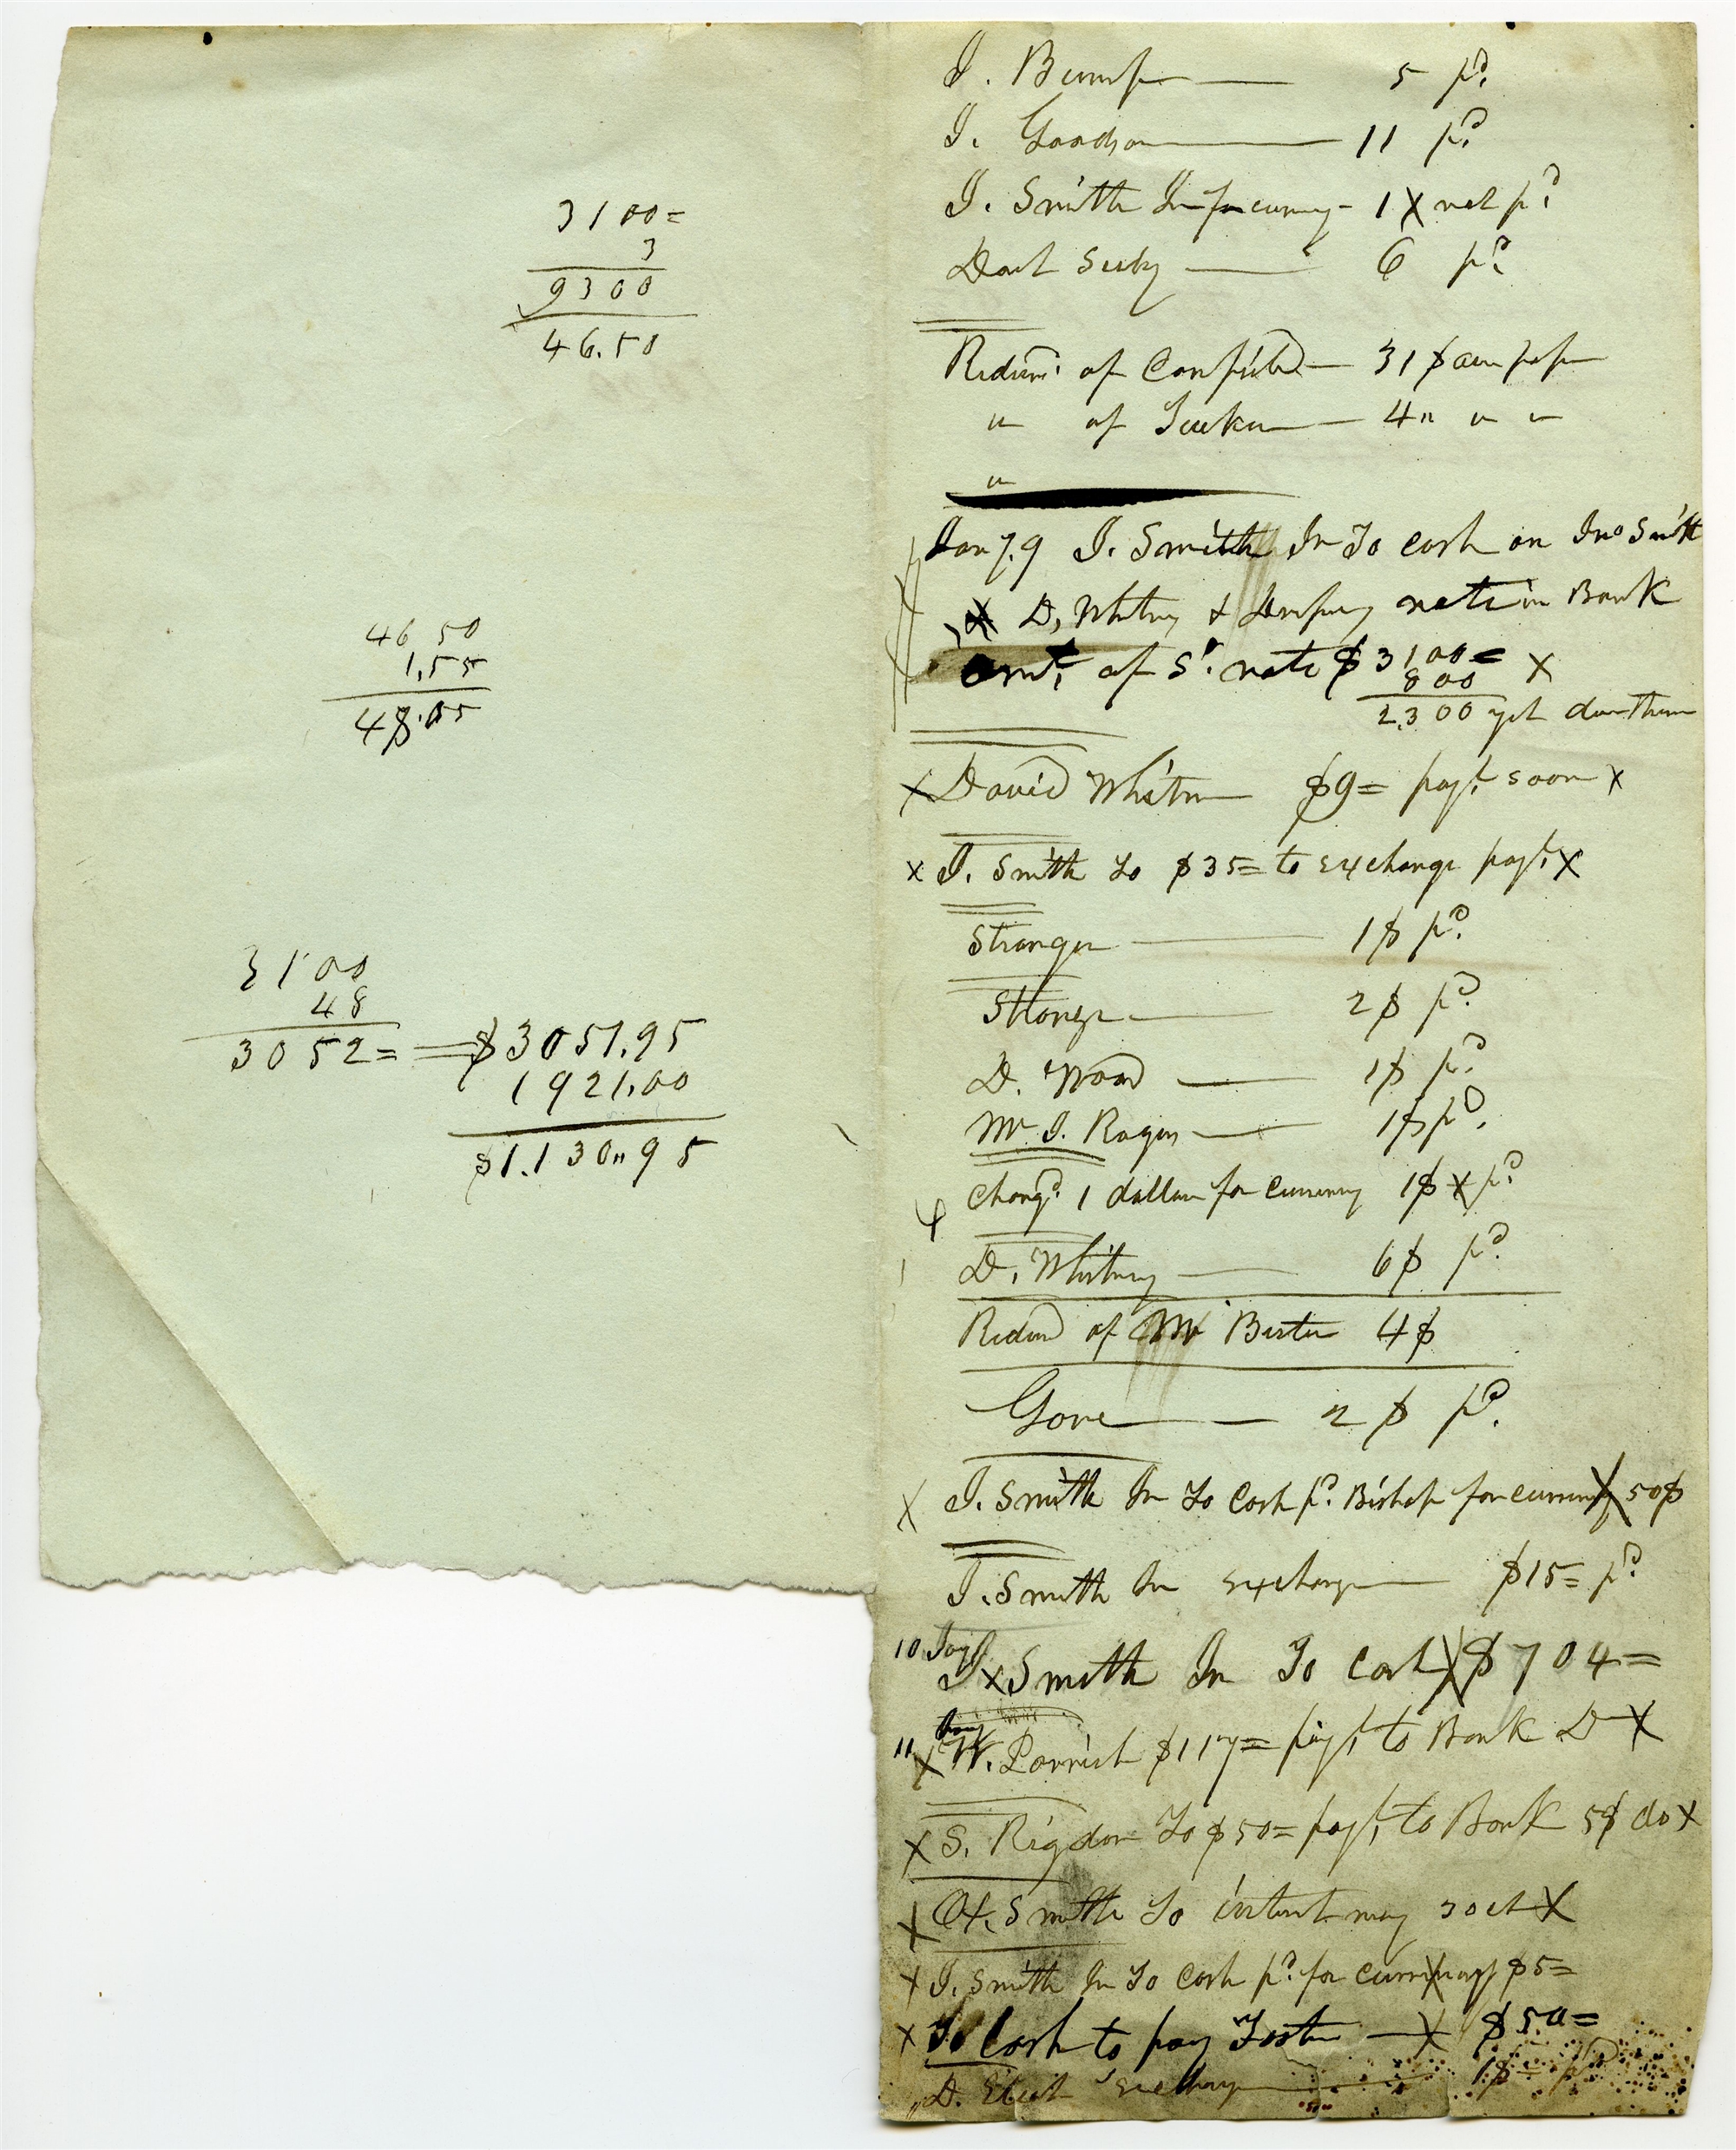 3100=
3
9300
46.50
46 50
1,55
48.05
3100
48
3052= = $3051.95
1921.00
$1.130"95
J. Bump — 5 pd.
J. — 11 pd.
J. Smith Jr for curency - 1 X not pd.
6 pd.
of — 31 $ our paper
" of — 4 " " "
"
Jany. 9 J. Smith Jr To cash on Jno Smith
X D, Whitney & note in Bank
Amt. of Sd. note $3100= X
800
2300 yet due them
X David Whitm $9= payt. soon X
X J. Smith To $35= to exchange payt. X
Stranger — 1$ pd.
Stranger — 2$ pd.
D. Wood — 1$ pd.
Mr J. — 1$ pd.
Changd. 1 dollar for currency 1$ X pd.
D. Whitney — 6$ pd.
of Mr 4$
Gove — 2 $ pd.
X J. Smith Jr To Cash pd. Bishop for currency X 50$
J. Smith Jr exchange — $15= pd.
10 Jany
J X Smith Jr To Cash X $704=
11 Jany
X W. Parrish $117= payt. to Bank D X
X S. Rigdon To $50= payt, to Bank 5$ do X
X H. Smith To intrest may 30 ct X
X J. Smith Jr To Cash pd. for currency X $5=
X To Cash to pay Foster — X $50=
" D. exchange — 1$ = pd